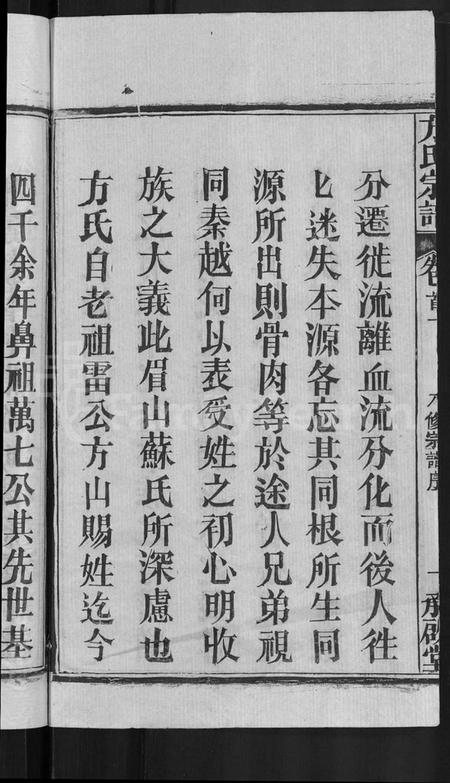 方氏宗譜
卷首
六修宗譜序
一
分遷徙流離血流分化而後人徃
匕迷失本源各忘其同根所生同
源所出則骨肉等於途人兄弟視
同秦越何以表受姓之初心明收
族之大義此眉山蘇氏所深慮也
方氏自老祖雷公方山賜姓迄今
四千余年鼻祖萬七公其先世基